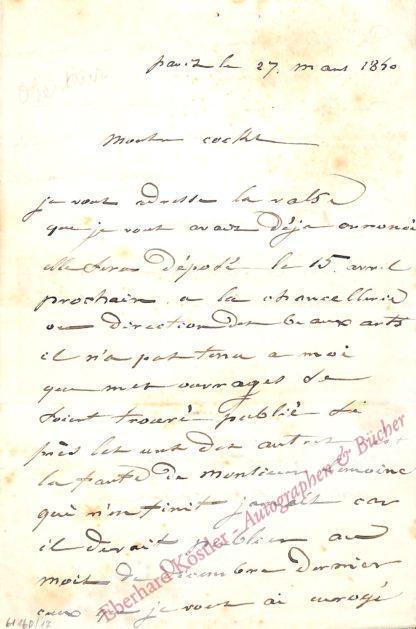 paris le 27. mars 1850
je vous adresse la valse
que je vous avais déja annoncé
elle sera déposé le 15. avril
prochain a la chancellerie
ou direction des beaux arts
il n'a pas tenu a moi
que mes ouvrages se
soient trouvé publié si
près les uns des autres
la faute de monsieur
qui n'en finit jamais car
il devait publier au
mois de décembre dernier
ceux que je vous ai
Eberhard Köstler - Autographen & Bücher